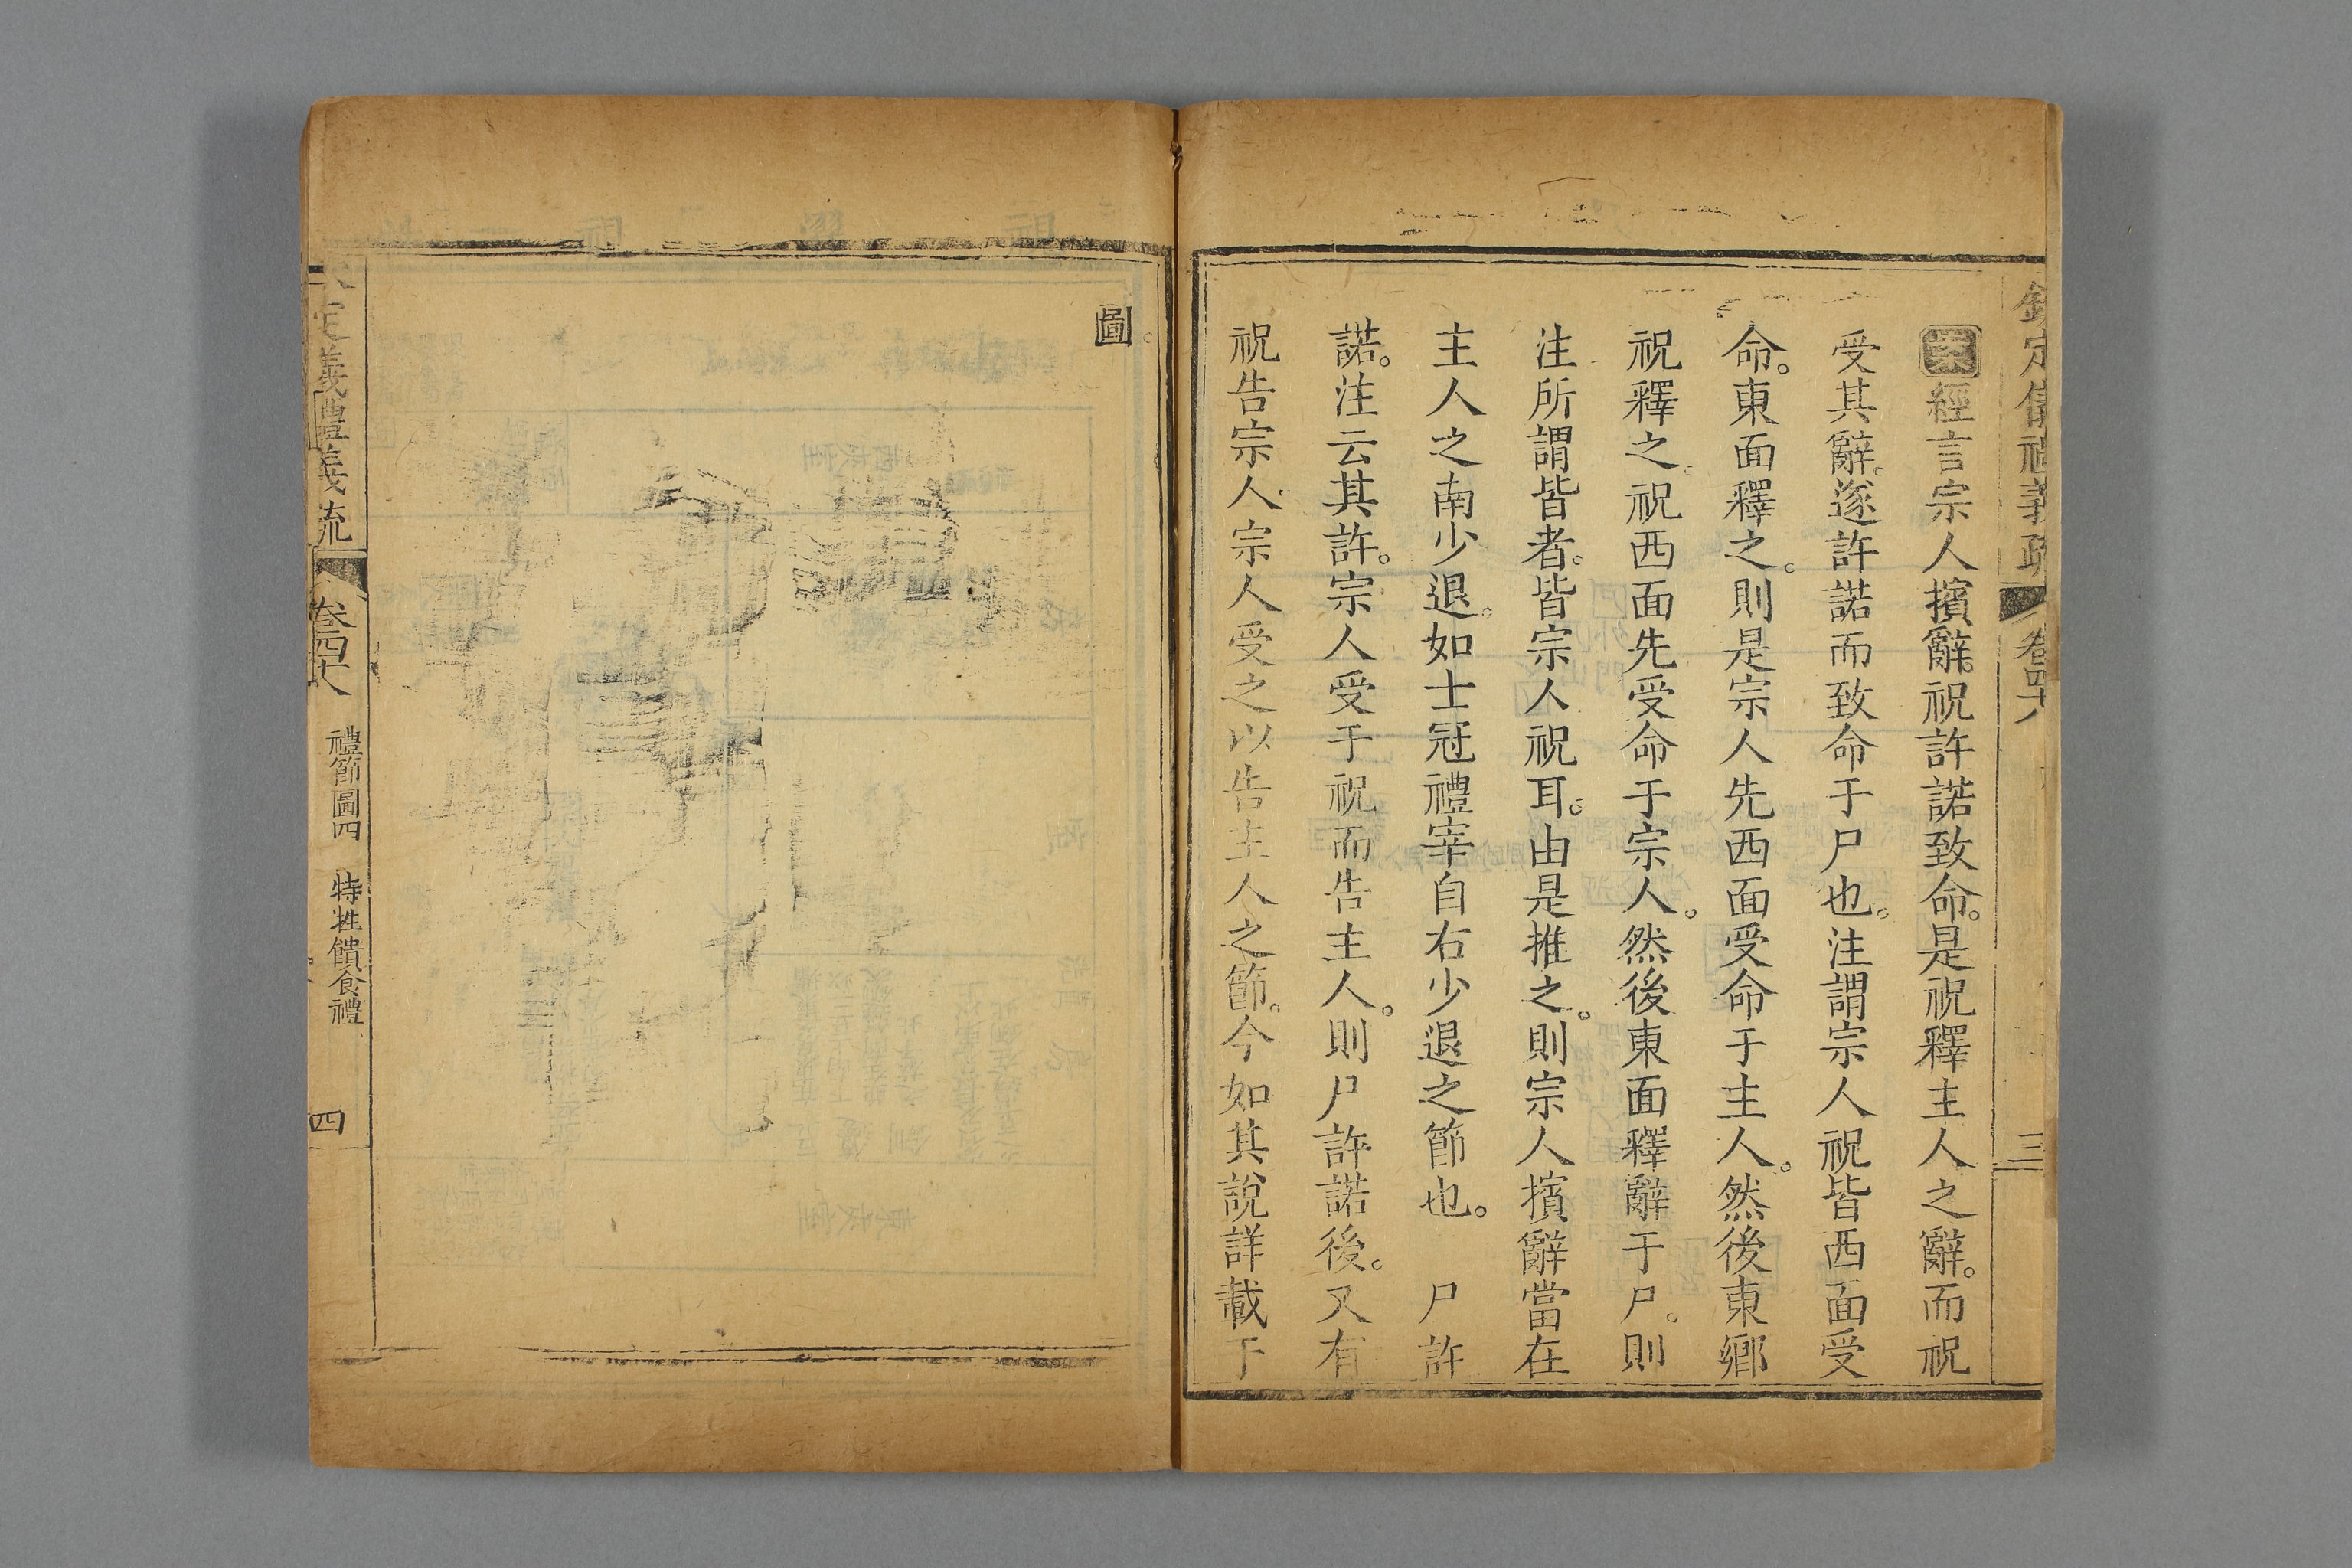 欽定儀禮義疏 卷四十八 三
案經言宗人擯辭。祝許諾致命。是祝釋主人之辭。而祝
受其辭。遂許諾而致命于尸也。注謂宗人祝皆西面受
命。東面釋之。則是宗人先西面受命于主人。然後東鄉
祝釋之。祝西面先受命于宗人。然後東面釋辭于尸。則
注所謂皆者。皆宗人祝耳。由是推之。則宗人擯辭當在
主人之南少退。如士冠禮宰自右少退之節也。 尸許
諾。注云其許。宗人受于祝而告主人。則尸許諾後。又有
祝告宗人宗人受之以告主人之節。今如其說詳載于
圖
定義禮義疏 卷四十八 禮節圖四 特牲饋食禮 四